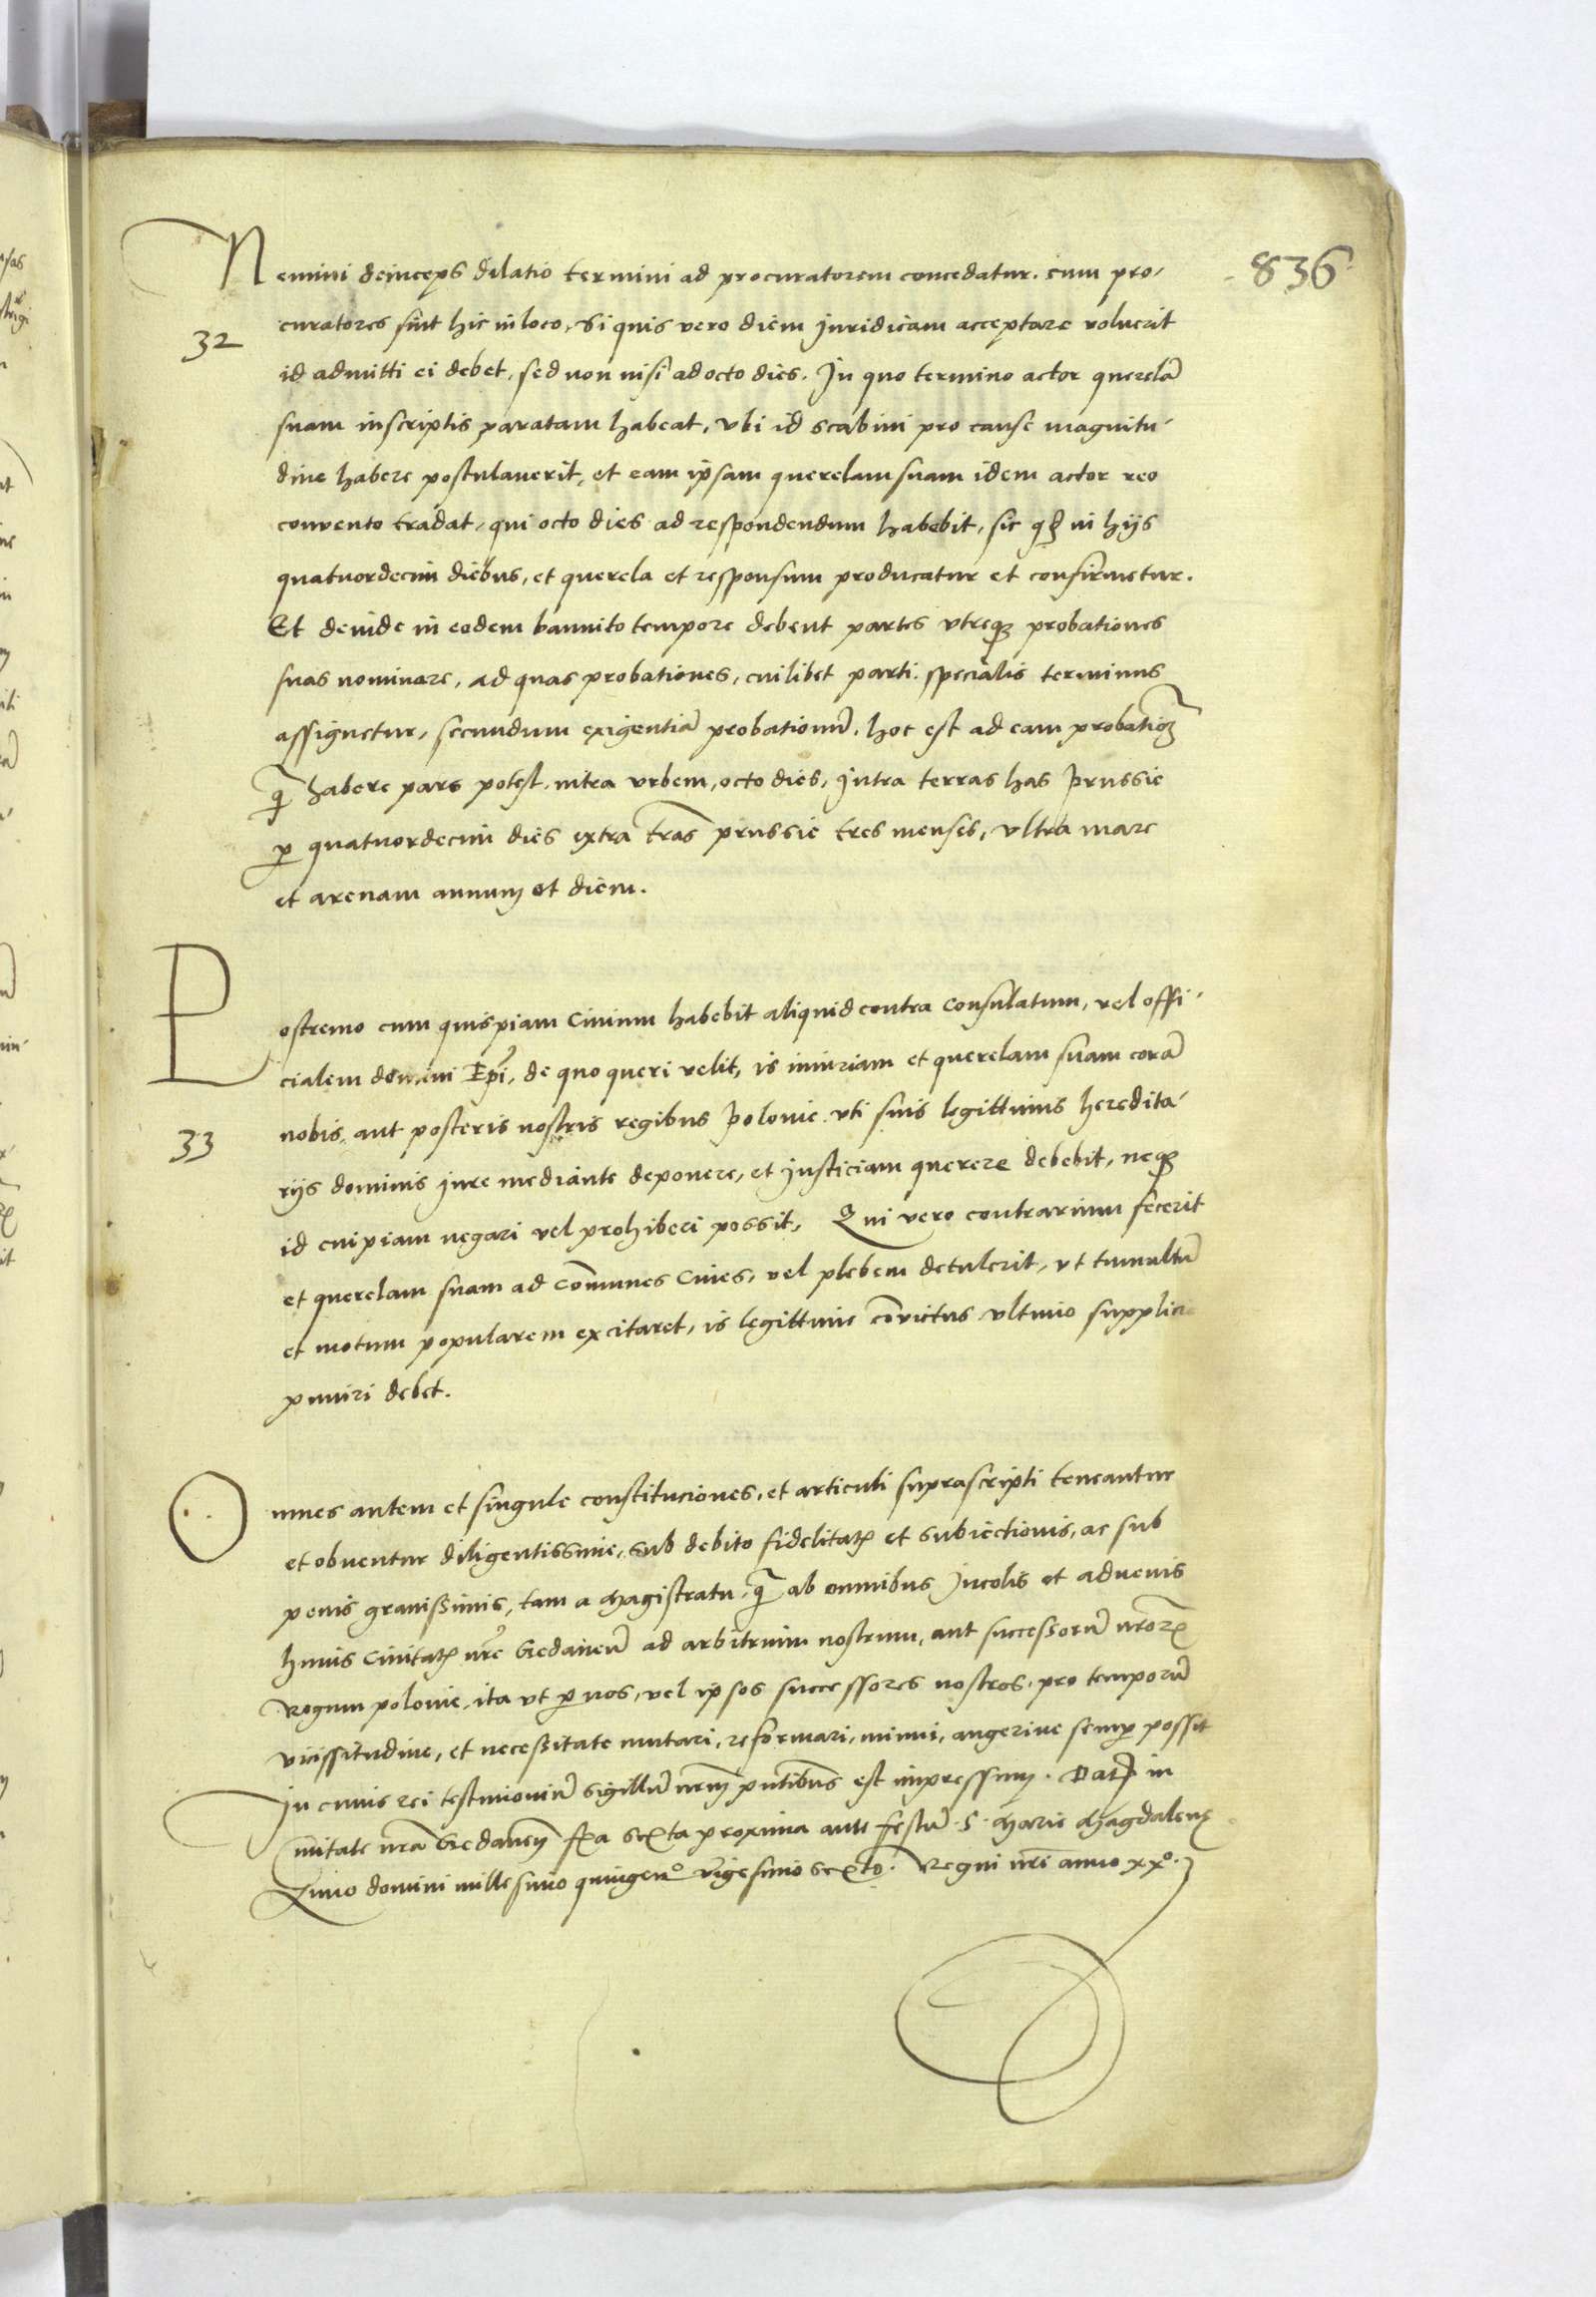 836
Nemini deinceps dilatio termini ad procuratorem concedatur. cum pro-
32
curatores sint hic in loco, Si quis vero diem juridicam acceptare voluerit
id admitti ei debet, sed non nisi ad octo dies. In quo termino actor querelā
suam in scriptis paratam habeat, vbi id scabini pro cause magnitu-
dine habere postulaverit, et eam ipsam querelam suam idem actor reo
convento tradat, qui octo dies ad respondendum habebit, sic qd in hijs
quatuordecim diebus, et querela et responsum producatur et confirmetur.
Et deinde in eodem bannito tempore debent partes vtreqꝫ probationes
suas nominare, ad quas probationes, cuilibet parti. specialis terminus
assignetur, secundum exigentiā probationū. hoc est ad eam probationꝫ
qā habere pars potest. intra vrbem, octo dies, Intra terras has Prussie
ꝑ quatuordecim dies extra tras̄ prussie tres menses, vltra mare
et arenam annum et diem.
Postremo cum quispiam Civium habebit aliquid contra Consulatum, vel offi-
cialem domini Epī, de quo queri velit, is iniuriam et querelam suam corā
33
nobis, aut posteris nostris regibus Polonie. vti suis legittimis heredita-
rijs dominis jure mediante deponere, et justiciam querere debebit, neqꝫ
id cuipiam negari vel prohiberi possit, Qui vero contrarium fecerit
et querelam suam ad Com̄unes Cives, vel plebem detulerit, vt tumultū
et motum popularem excitaret, is legittime cōvictus vltimo supplicio
puniri debet.
Omnes autem et singule constituciones, et articuli suprascripti teneantur
et obventur diligentissime, sub debito fidelitatꝭ et subiectionis, ac sub
penis gravissimis, tam a Magistratu, qā ab omnibus Incolis et advenis
huius Civitatꝭ nr̄e Gedaneñ ad arbitrium nostrum, aut successorū nr̄oꝝ
Regum polonie, ita vt ꝑ nos, vel ipsos successores nostros. pro temporū
vicissitudine, et necessitate mutari, reformari, minui, augerive semꝑ possit
In cuius rei testimoniū Sigillū nr̄m pn̄tibus est impressum. Datꝭ in
Civitate nr̄a Gedaneñ fr̄ia Sexta proxima ante festū S. Marie Magdalenę
Anno domini millesimo quingenᵒ vigesimo Sexto. Regni nr̄i anno xxᵒ.